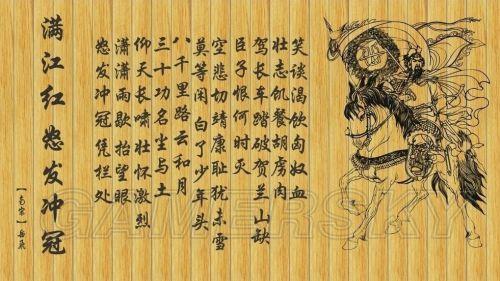 满江红 怒发冲冠
【南宋】岳飞
怒发冲冠凭栏处
潇潇雨歇抬望眼
仰天长啸壮怀激烈
三十功名尘与土
八千里路云和月
莫等闲白了少年头
空悲切靖康耻犹未雪
臣子恨何时灭
驾长车踏破贺兰山缺
壮志饥餐胡虏肉
笑谈渴饮匈奴血
GAMERSKY